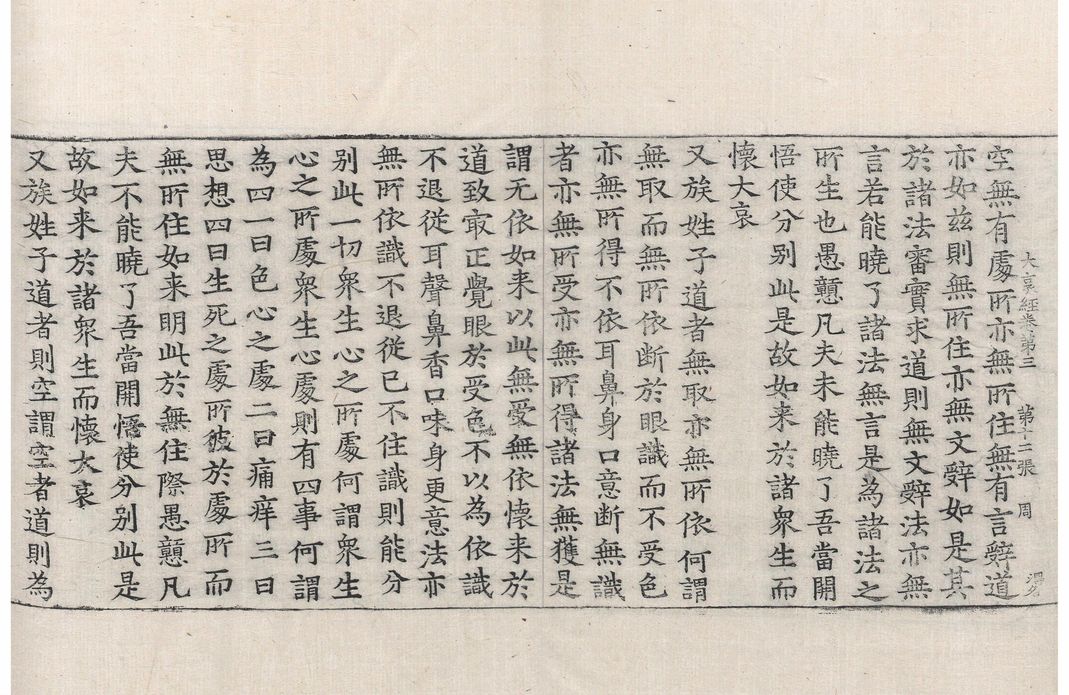 大哀經卷第三　第十二張　周
空無有處所亦無所住無有言辭道
亦如兹則無所住亦無文辭如是其
於諸法審實求道則無文辭法亦無
言若能曉了諸法無言是為諸法之
所生也愚戇凡夫未能曉了吾當開
悟使分别此是故如来於諸衆生而
懷大哀
又族姓子道者無取亦無所依何謂
無取而無所依断於眼識而不受色
亦無所得不依耳鼻身口意断無識
者亦無所受亦無所得諸法無獲是
謂无依如来以此無受無依懷来於
道致㝡正覺眼於受色不以為依識
不退從耳聲鼻香口味身更意法亦
無所依識不退從已不住識則能分
别此一切衆生心之所處何謂衆生
心之所處衆生心處則有四事何謂
為四一曰色心之處二曰痛痒三曰
思想四曰生死之處所彼於處所而
無所住如来明此於無住際愚戇凡
夫不能曉了吾當開悟使分别此是
故如来於諸衆生而懷大哀
又族姓子道者則空謂空者道則為